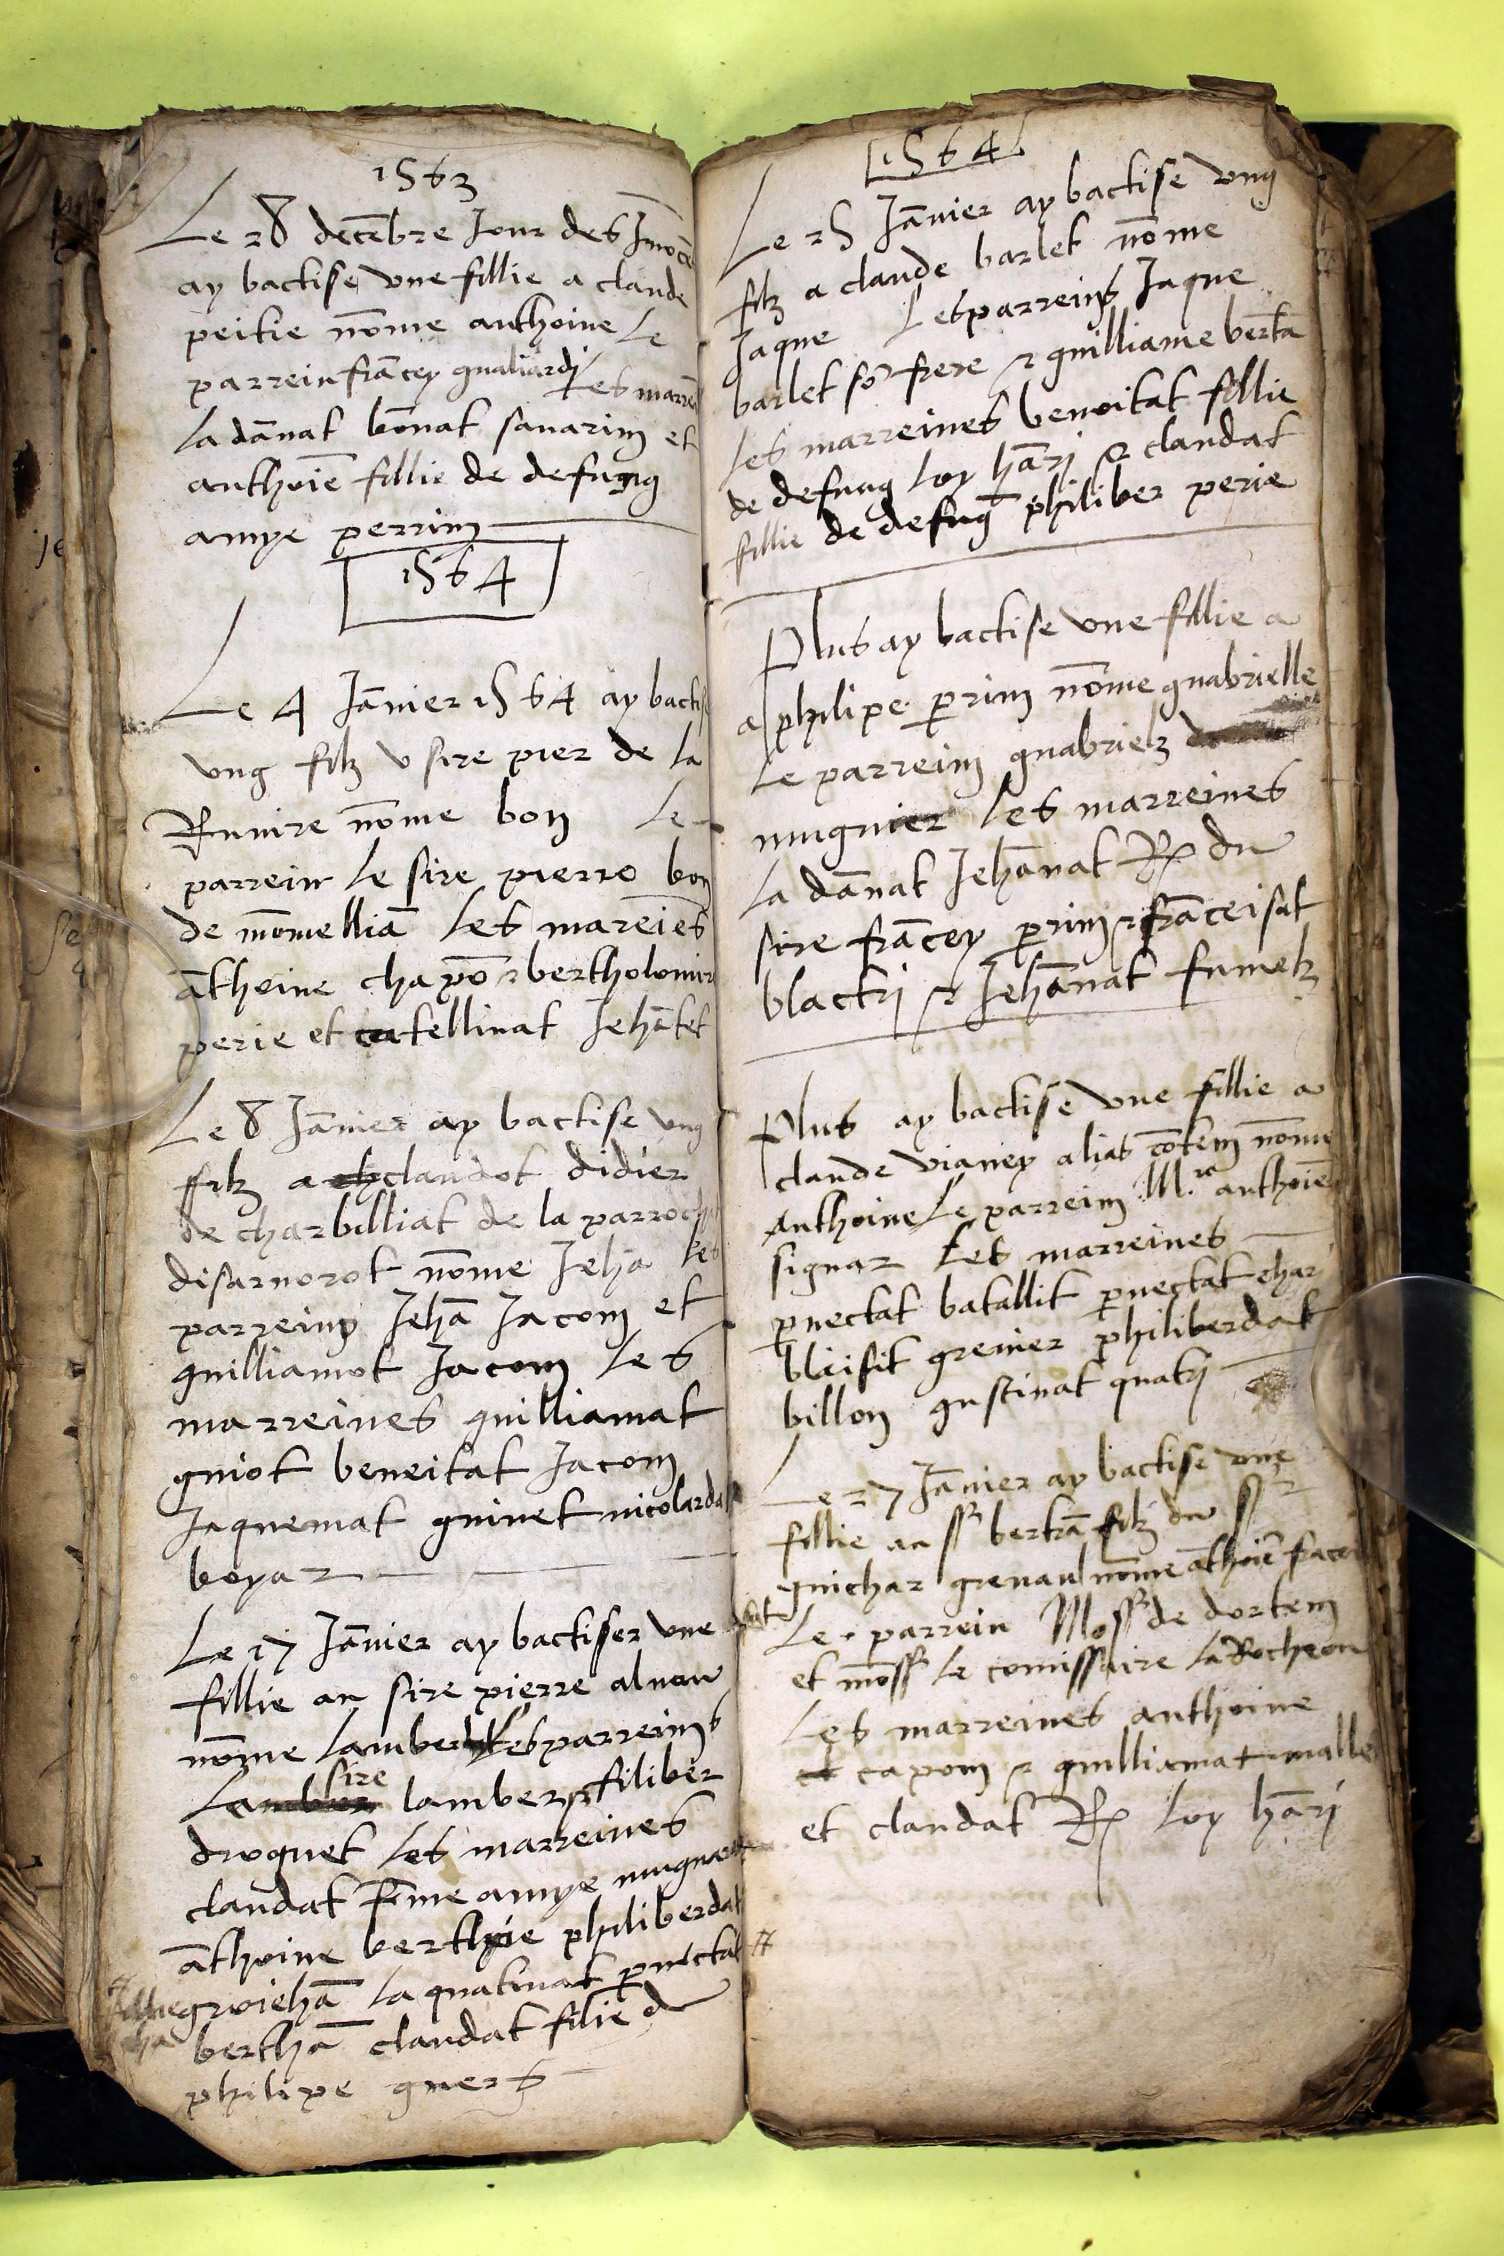 1563
Le 28 decēbre Jour des Jnnocē
ay bactise une fillie a claude
peitie nōme anthoine Le
parrein frācey gualiardj Les marre
la dānat bōnat savarin et
anthoiē fillie de defung
amye perrin
1564
Le 4 Jāvier 1564 ay bactise
ung filz u sire pier de la
Ruvire nōme bon Le
parrein le sire pierre bon
de mōmelliā les mareiēs
āthoine chapō & bertholomie
perie et catellinat Jehātet
Le 8 Jāvier ay bactise ung
filz a claudot didier
de charbilliat de la parroch
disarnorot nōme Jehā les
parreins Jehā Jacom et
guilliamot Jacom les
marreines guilliamat
guiot beneitat Jacom
Jaquemat guinet nicolarda
boyar
Le 17 Jāvier ay bactiser une
fillie au sire pierre
nōme Les parreins
sire
lamber & filiber
droguet les marreines
claudat fēme amye
āthoine berthie philiberdat
la quatinat pernectat
berthā claudat filie de
philipe guers
1564
Le 25 Jāvier ay bactise ung
filz a claude barlet nōme
Jaque Les parreins Jaque
barlet sō frere & guilliame berta
les marreines benoitat fillie
de defung loy hārj & claudat
fillie de defung philiber perie
Plus ay bactise une fillie a
a philipe perrin nōme guabrielle
le parrein guabrielz
mugnier les marreines
la dānat Jehānat R du
sire frācey perrin & frāceisat
blactrj & Jehānat fumelz
Plus ay bactise une fillie a
claude vianey alias cōtem nōme
anthoine Le parrein M.re anthoiē
signar Les marreines
pernectat batallit pernectat char
bleisit grenier philiberdat
billon gustinat quatrj
Le 27 Jāvier ay bactise une
fillie au sr bertrā filz du sr
guichar grenaul nōme āthoiē
Le parrein Mosr de dortem
et mōsr le comissaire la Rocheon
Les marreines anthoine
capon & guilliamat malle
et claudat R loy hārj